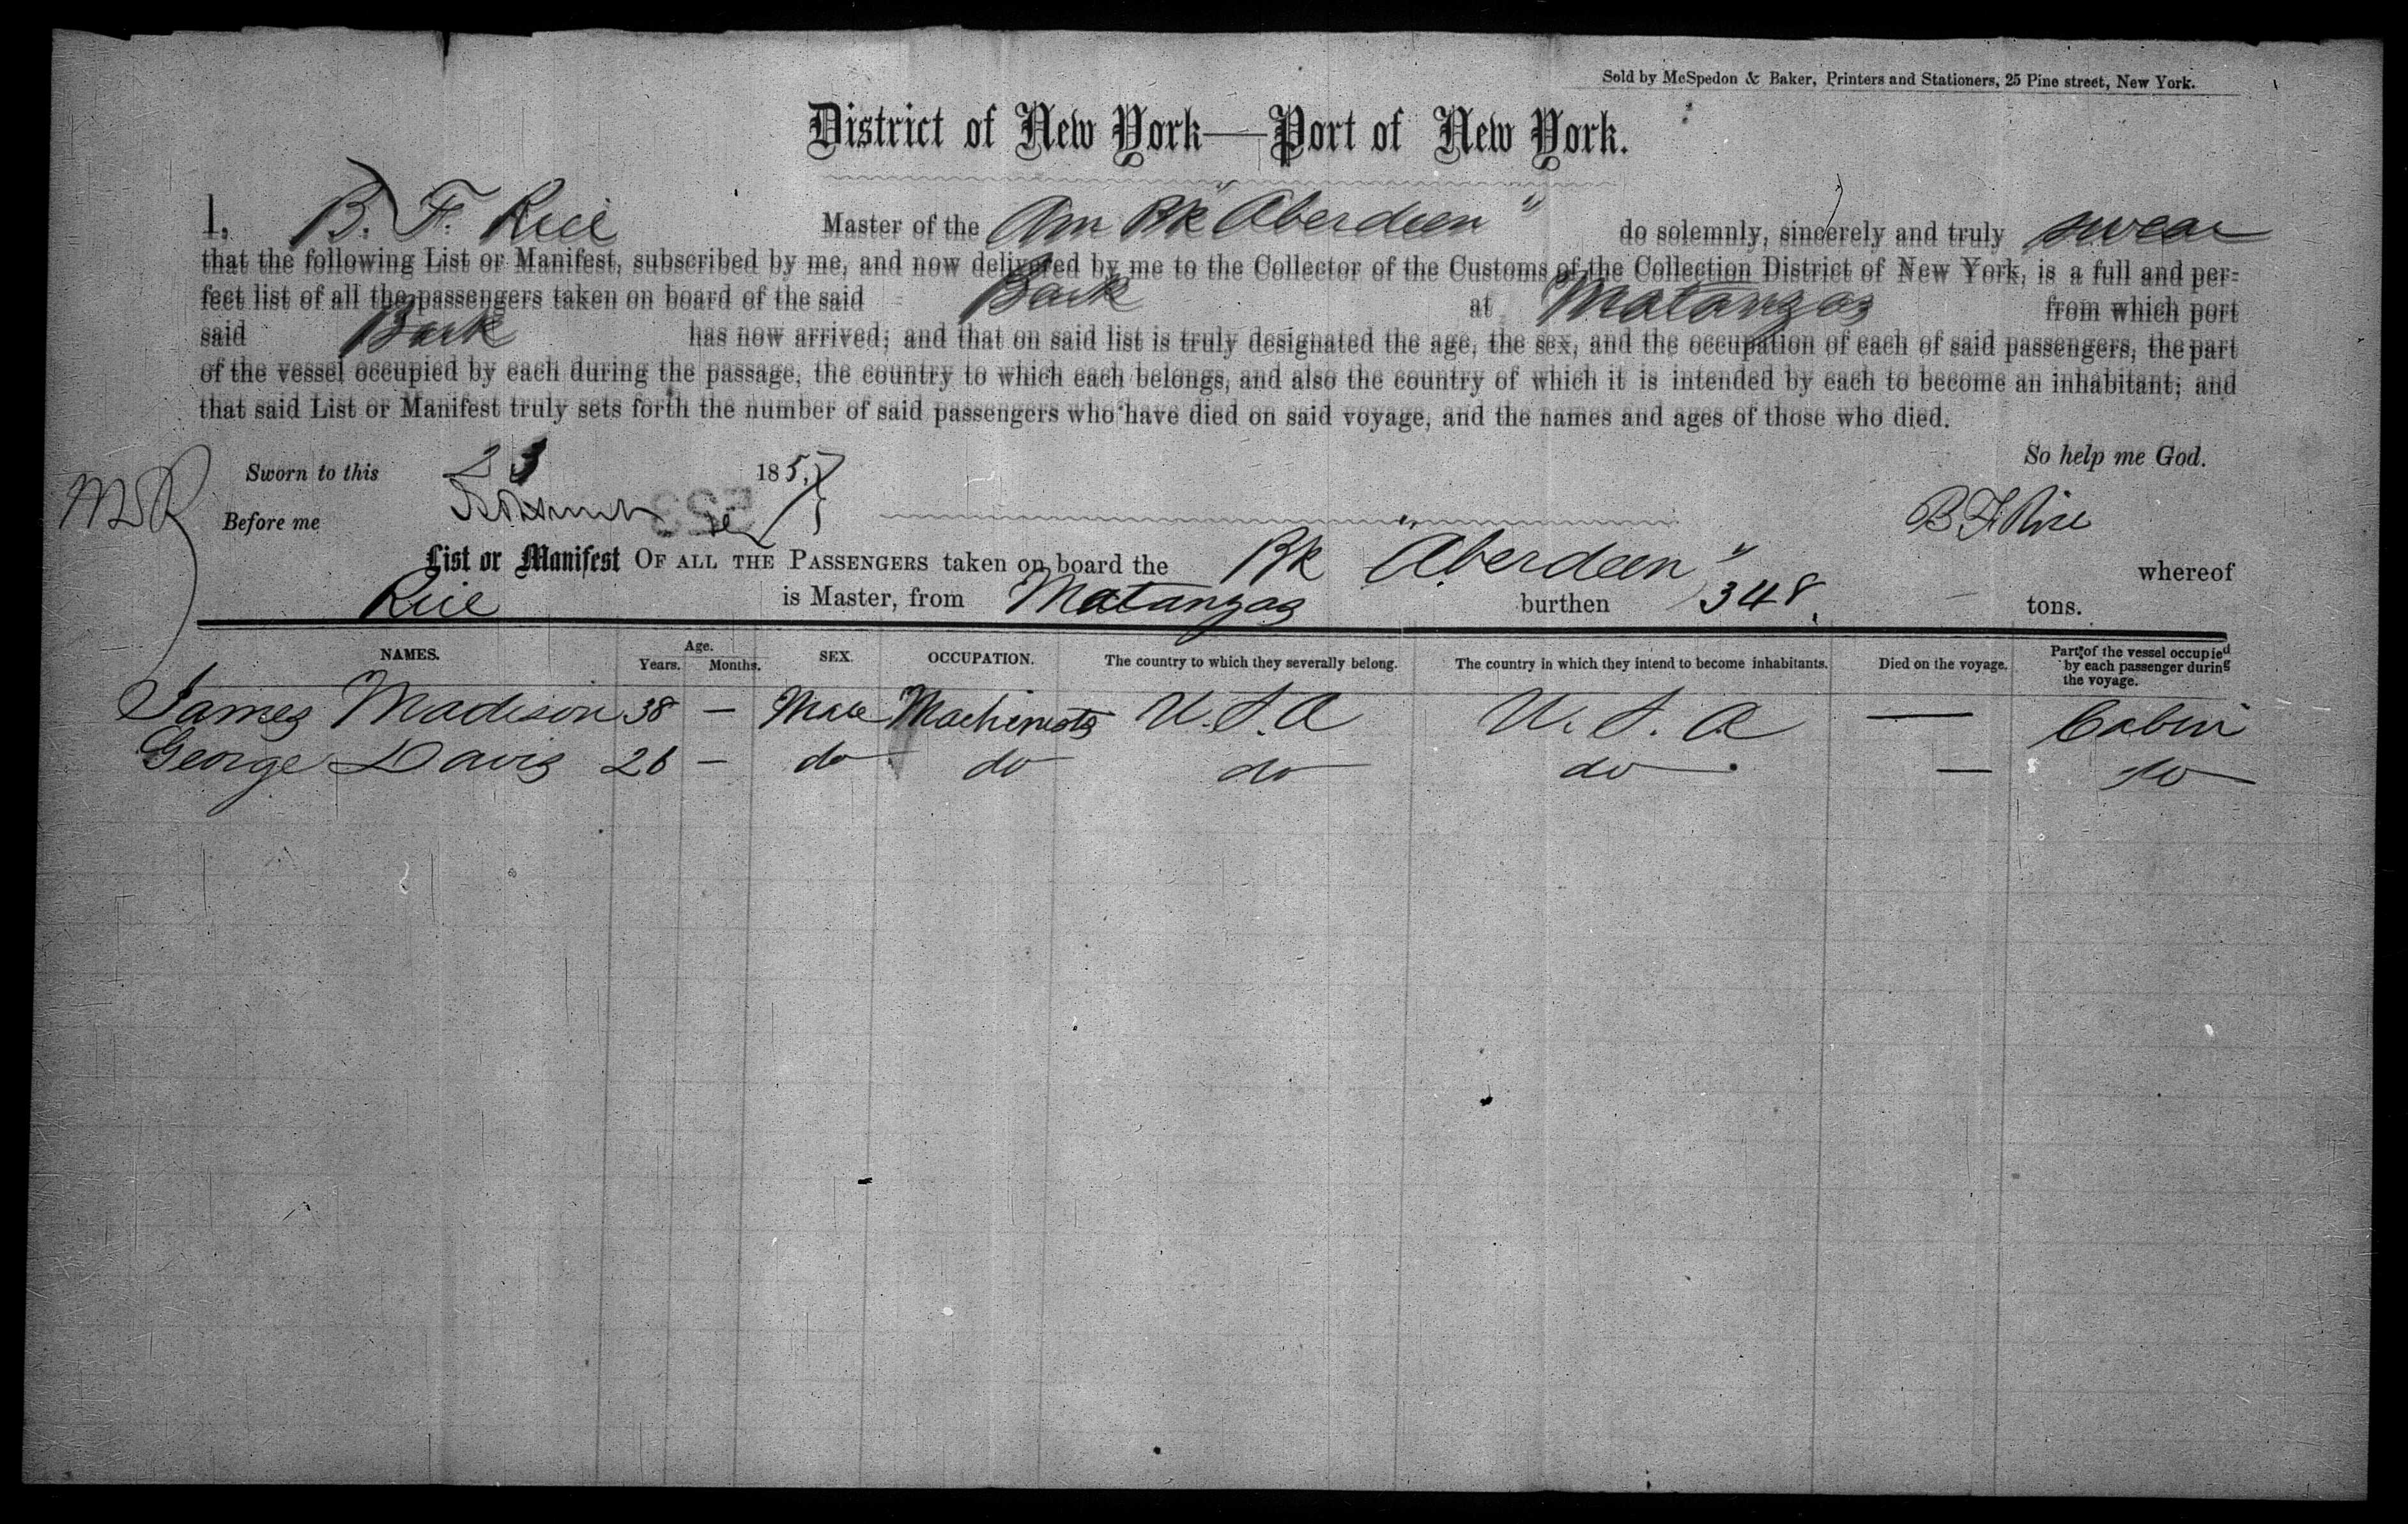 Sold by McSpedon & Baker, Printers and Stationers, 25 Pine street, New York.
District of New York—Port of New York.
I, B. F. Rice Master of the Am Bk "Aberdeen" do solemnly, sincerely and truly swear
that the following List or Manifest, subscribed by me, and now delivered by me to the Collector of the Customs of the Collection District of New York, is a full and per-
fect list of all the passengers taken on board of the said Bark at Matanzas from which port
said Bark has now arrived; and that on said list is truly designated the age, the sex, and the occupation of each of said passengers, the part
of the vessel occupied by each during the passage, the country to which each belongs, and also the country of which it is intended by each to become an inhabitant; and
that said List or Manifest truly sets forth the number of said passengers who have died on said voyage, and the names and ages of those who died.
So help me God.
Sworn to this 23 1857
Before me B F Rice
List or Manifest OF ALL THE PASSENGERS taken on board the Bk "Aberdeen" whereof
Rice is Master, from Matanzas burthen 348. tons.
NAMES. Age. Years. Months. SEX. OCCUPATION. The country to which they severally belong. The country in which they intend to become inhabitants. Died on the voyage. Part of the vessel occupied by each passenger during the voyage.
James Madison 38 — Male Machinists U.S.A U.S.A — Cabin
George Davis 26 — do do do do — do